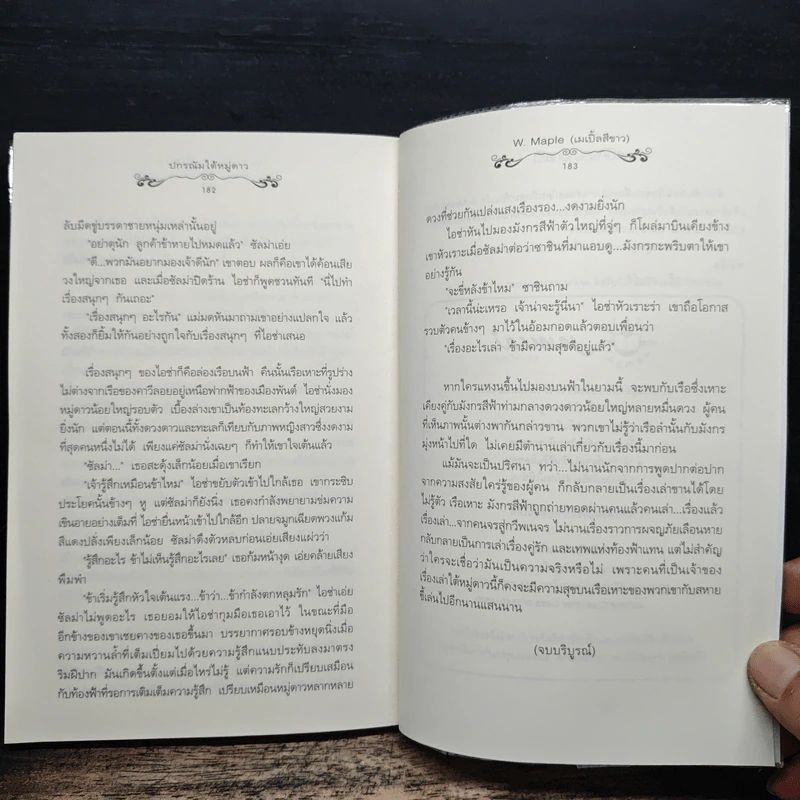 ปกรณัมใต้หมู่ดาว
182
ลับมีดขู่บรรดาชายหนุ่มเหล่านั้นอยู่
"อย่าดุนัก ลูกค้าข้าหายไปหมดแล้ว" ซัลม่าเอ่ย
"ดี...พวกมันอยากมองเจ้าดีนัก" เขาตอบ ผลก็คือเขาได้ค้อนเสีย
วงใหญ่จากเธอ และเมื่อซัลม่าปิดร้าน ไอซ่าก็พูดชวนทันที "นี่ไปทำ
เรื่องสนุกๆ กันเถอะ"
"เรื่องสนุกๆ อะไรกัน" แม่มดหันมาถามเขาอย่างแปลกใจ แล้ว
ทั้งสองก็ยิ้มให้กันอย่างถูกใจกับเรื่องสนุกๆ ที่ไอซ่าเสนอ
เรื่องสนุกๆ ของไอซ่าก็คือล่องเรือบนฟ้า คืนนั้นเรือเหาะที่รูปร่าง
ไม่ต่างจากเรือของคาวีลอยอยู่เหนือฟากฟ้าของเมืองพันต์ ไอซ่านั่งมอง
หมู่ดาวน้อยใหญ่รอบตัว เบื้องล่างเขาเป็นท้องทะเลกว้างใหญ่สวยงาม
ยิ่งนัก แต่ตอนนี้ทั้งดวงดาวและทะเลก็เทียบกับภาพหญิงสาวซึ่งงดงาม
ที่สุดคนหนึ่งไม่ได้ เพียงแค่ซัลม่านั่งเฉยๆ ก็ทำให้เขาใจเต้นแล้ว
"ซัลม่า..." เธอสะดุ้งเล็กน้อยเมื่อเขาเรียก
"เจ้ารู้สึกเหมือนข้าไหม" ไอซ่าขยับตัวเข้าไปใกล้เธอ เขากระซิบ
ประโยคนั้นข้างๆ หู แต่ซัลม่าก็ยังนิ่ง เธอคงกำลังพยายามข่มความ
เขินอายอย่างเต็มที่ ไอซ่ายื่นหน้าเข้าไปใกล้อีก ปลายจมูกเฉียดพวงแก้ม
สีแดงปลั่งเพียงเล็กน้อย ซัลม่าดึงตัวหลบก่อนเอ่ยเสียงแผ่วว่า
"รู้สึกอะไร ข้าไม่เห็นรู้สึกอะไรเลย" เธอก้มหน้างุด เอ่ยคล้ายเสียง
พึมพำ
"ข้าเริ่มรู้สึกหัวใจเต้นแรง...ข้าว่า...ข้ากำลังตกหลุมรัก" ไอซ่าเอ่ย
ซัลม่าไม่พูดอะไร เธอยอมให้ไอซ่ากุมมือเธอเอาไว้ ในขณะที่มือ
อีกข้างของเขาเชยคางของเธอขึ้นมา บรรยากาศรอบข้างหยุดนิ่งเมื่อ
ความหวานล้ำที่เต็มเปี่ยมไปด้วยความรู้สึกแนบประทับลงมาตรง
ริมฝีปาก มันเกิดขึ้นตั้งแต่เมื่อไหร่ไม่รู้ แต่ความรักก็เปรียบเสมือน
กับท้องฟ้าที่รอการเติมเต็มความรู้สึก เปรียบเหมือนหมู่ดาวหลากหลาย
W. Maple (เมเปิ้ลสีขาว)
183
ดวงที่ช่วยกันเปล่งแสงเรืองรอง...งดงามยิ่งนัก
ไอซ่าหันไปมองมังกรสีฟ้าตัวใหญ่ที่จู่ๆ ก็โผล่มาบินเคียงข้าง
เขาหัวเราะเมื่อซัลม่าต่อว่าซาชินที่มาแอบดู...มังกรกะพริบตาให้เขา
อย่างรู้กัน
"จะขี่หลังข้าไหม" ซาชินถาม
"เวลานี้น่ะเหรอ เจ้าน่าจะรู้นี่นา" ไอซ่าหัวเราะร่า เขาถือโอกาส
รวบตัวคนข้างๆ มาไว้ในอ้อมกอดแล้วตอบเพื่อนว่า
"เรื่องอะไรเล่า ข้ามีความสุขดีอยู่แล้ว"
หากใครแหงนขึ้นไปมองบนฟ้าในยามนี้ จะพบกับเรือซึ่งเหาะ
เคียงคู่กับมังกรสีฟ้าท่ามกลางดวงดาวน้อยใหญ่หลายหมื่นดวง ผู้คน
ที่เห็นภาพนั้นต่างพากันกล่าวขาน พวกเขาไม่รู้ว่าเรือลำนั้นกับมังกร
มุ่งหน้าไปที่ใด ไม่เคยมีตำนานเล่าเกี่ยวกับเรื่องนี้มาก่อน
แม้มันจะเป็นปริศนา ทว่า...ไม่นานนักจากการพูดปากต่อปาก
จากความสงสัยใคร่รู้ของผู้คน ก็กลับกลายเป็นเรื่องเล่าขานได้โดย
ไม่รู้ตัว เรือเหาะ มังกรสีฟ้าถูกถ่ายทอดผ่านคนแล้วคนเล่า...เรื่องแล้ว
เรื่องเล่า...จากคนจรสู่กวีพเนจร ไม่นานเรื่องราวการผจญภัยเลือนหาย
กลับกลายเป็นการเล่าเรื่องคู่รัก และเทพแห่งท้องฟ้าแทน แต่ไม่สำคัญ
ว่าใครจะเชื่อว่ามันเป็นความจริงหรือไม่ เพราะคนที่เป็นเจ้าของ
เรื่องเล่าใต้หมู่ดาวนี้ก็คงจะมีความสุขบนเรือเหาะของพวกเขากับสหาย
ขี้เล่นไปอีกนานแสนนาน
(จบบริบูรณ์)